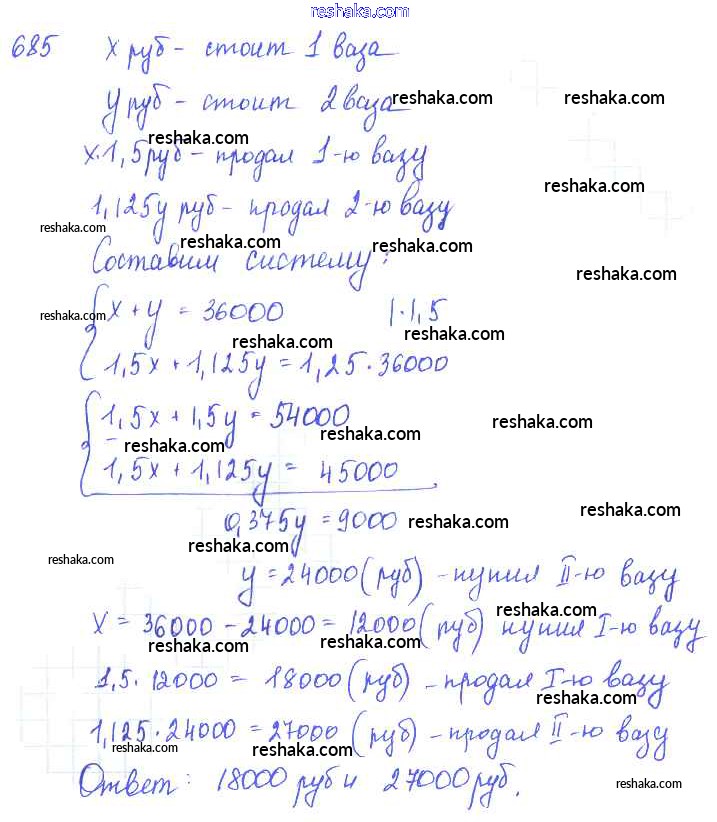 reshaka.com
685 х руб - стоит 1 ваза
у руб - стоит 2 ваза reshaka.com reshaka.com
reshaka.com
х·1,5 руб - продал 1-ю вазу
reshaka.com
1,125у руб - продал 2-ю вазу
reshaka.com reshaka.com reshaka.com
Составим систему:
reshaka.com
х + у = 36000 |·1,5
reshaka.com reshaka.com
reshaka.com
1,5х + 1,125у = 1,25·36000
1,5х + 1,5у = 54000
reshaka.com reshaka.com reshaka.com
1,5х + 1,125у = 45000
reshaka.com
0,375у = 9000 reshaka.com
reshaka.com reshaka.com
у = 24000 (руб) - купил II-ю вазу
reshaka.com
х = 36000 - 24000 = 12000 (руб) купил I-ю вазу
reshaka.com reshaka.com
1,5·12000 = 18000 (руб) - продал I-ю вазу
reshaka.com
1,125·24000 = 27000 (руб) - продал II-ю вазу
reshaka.com reshaka.com reshaka.com
Ответ: 18000 руб и 27000 руб.
reshaka.com